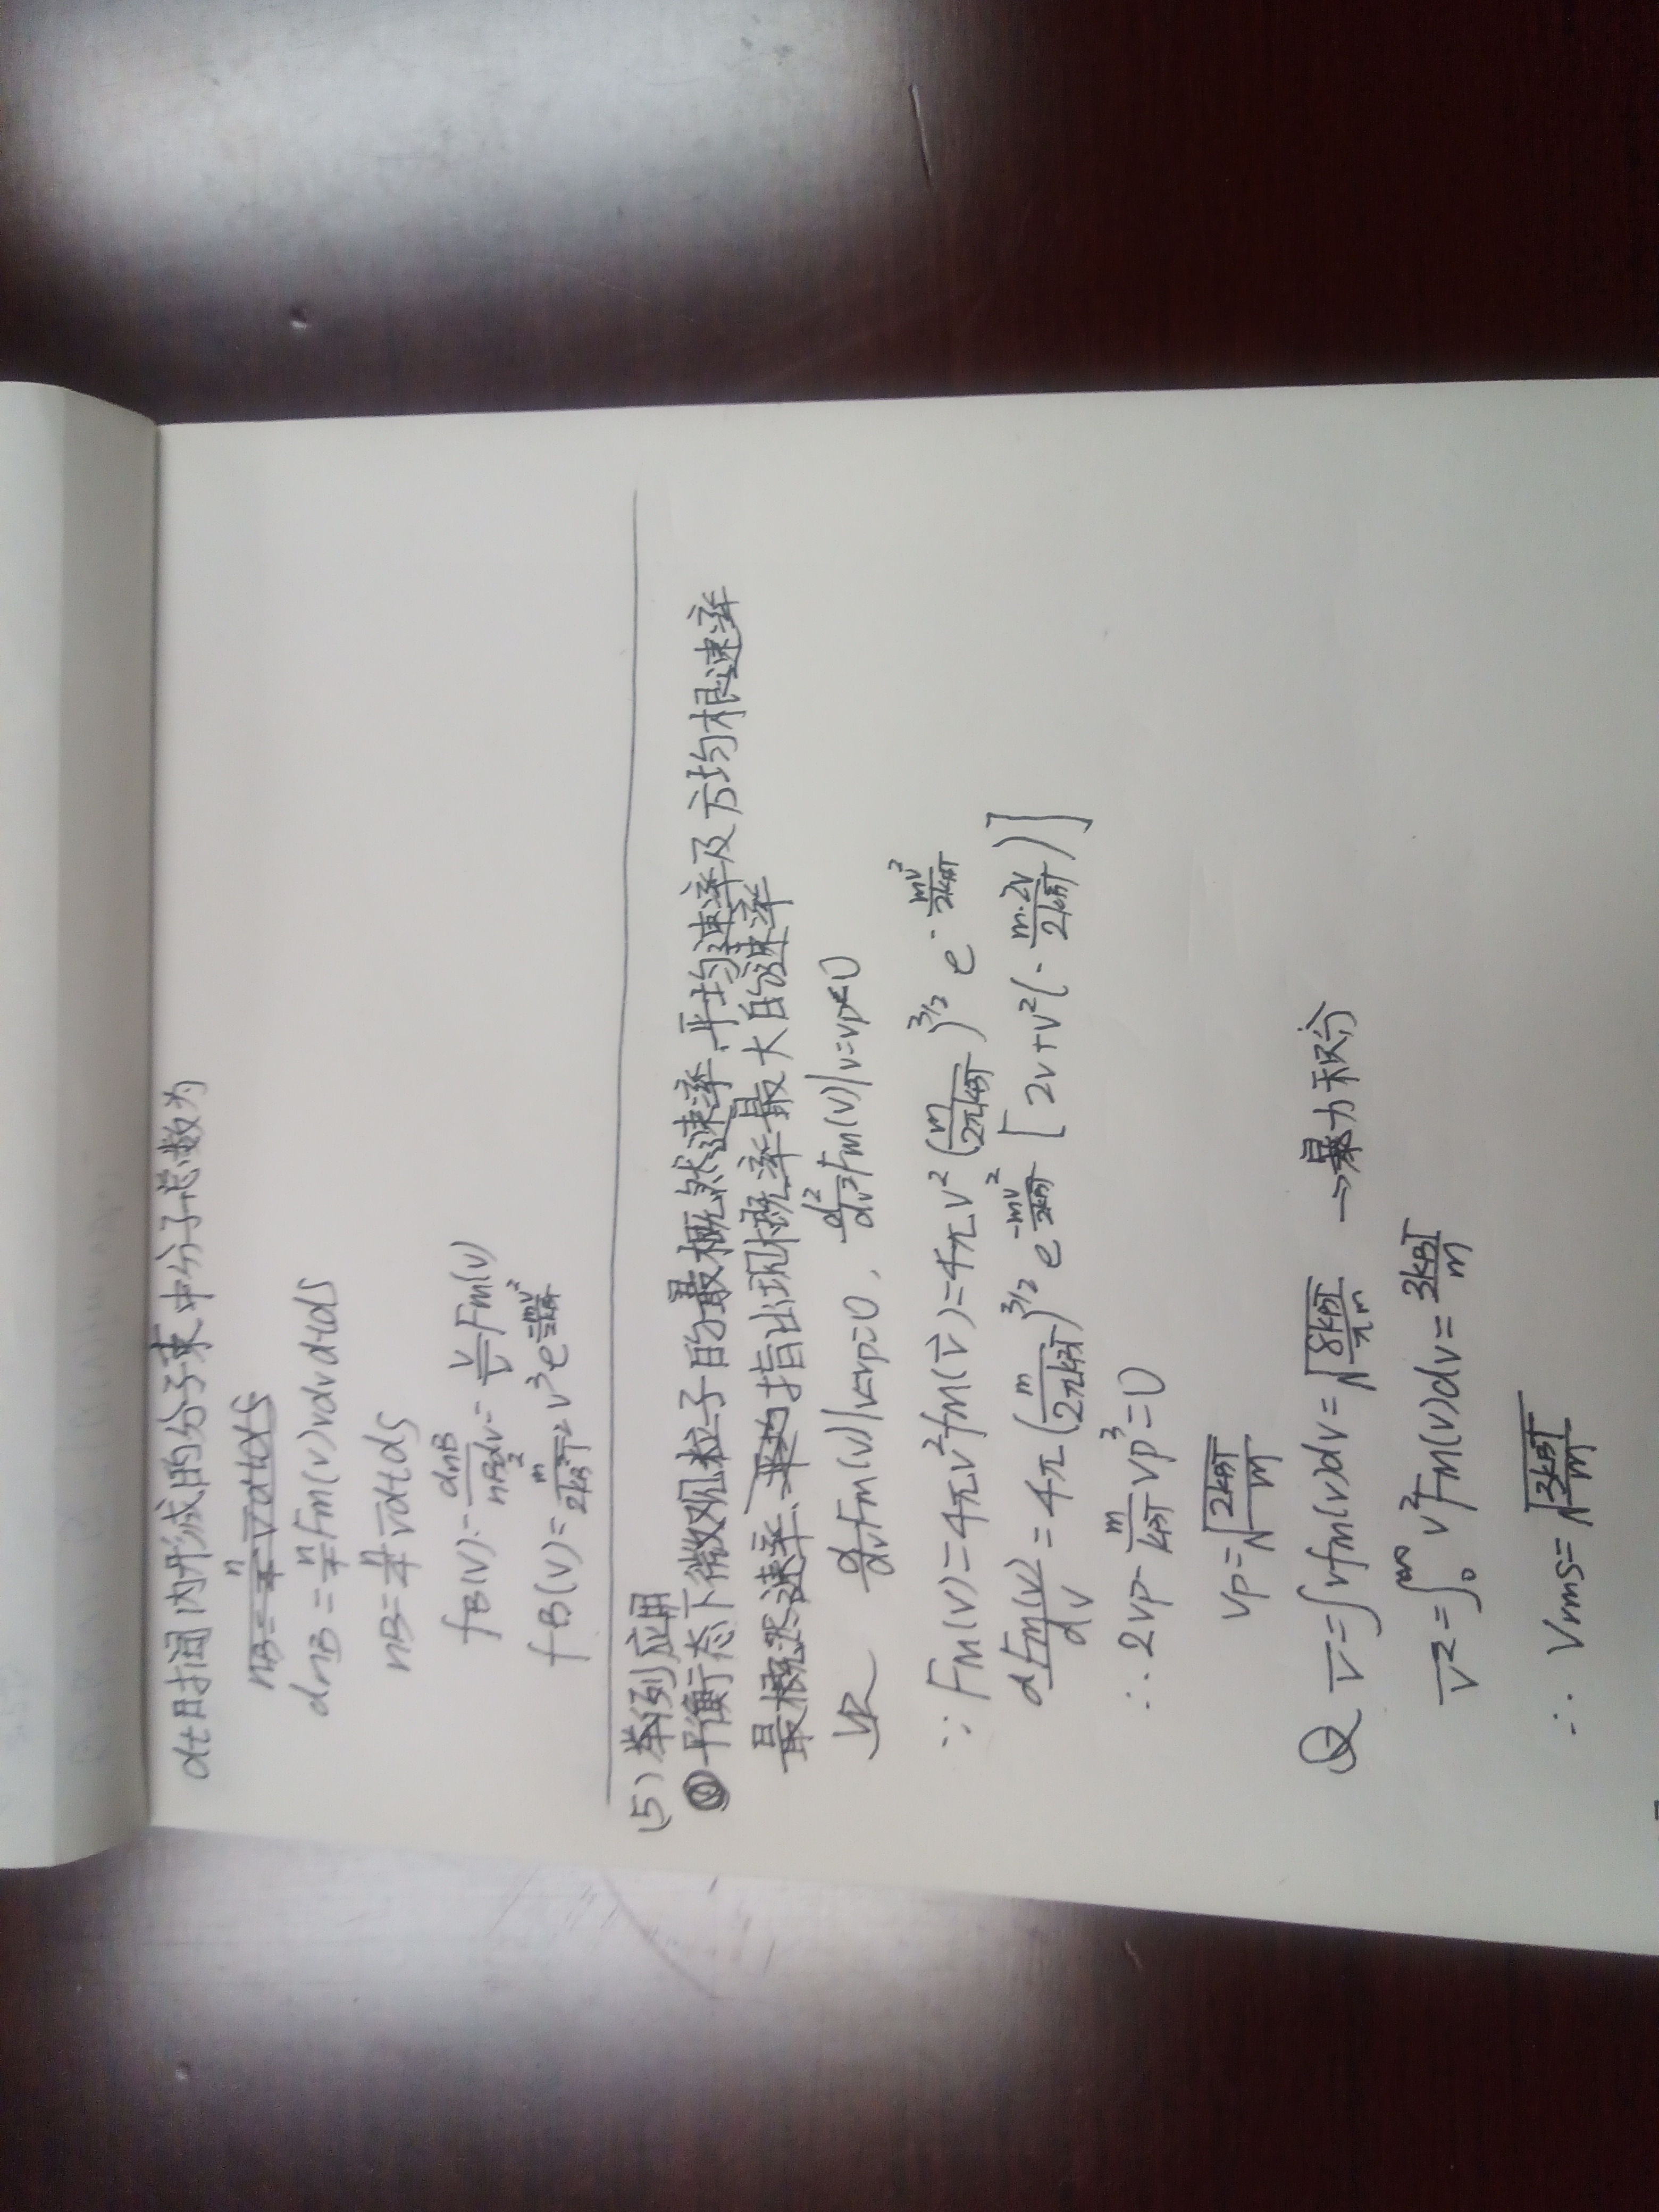 dt时间内形成的分子束中分子总数为
dnB = n/4 Fm(v)vdvdtds
nB = n/4 v̄dtds
fB(v) = dnB/nBdv = v/v̄ Fm(v)
fB(v) = m²/2kB²T² v³e^-mv²/2kBT
(5)举例应用
① 平衡态下微观粒子的最概然速率、平均速率及方均根速率
最概然速率 指出现概率最大的速率
即 d/dv Fm(v)|v=vp=0, d²/dv² Fm(v)|v=vp<0
∵ Fm(v)=4πv²fm(v⃗)=4πv²(m/2πkBT)^3/2 e^-mv²/2kBT
dFm(v)/dv = 4π(m/2πkBT)^3/2 e^-mv²/2kBT [2v+v²(-m·2v/2kBT)]
∴ 2vp - m/kBT vp³=0
vp=√2kBT/m
② v̄=∫vfm(v)dv=√8kBT/πm →暴力积分
v̄²=∫₀^∞ v²Fm(v)dv=3kBT/m
∴ Vrms=√3kBT/m